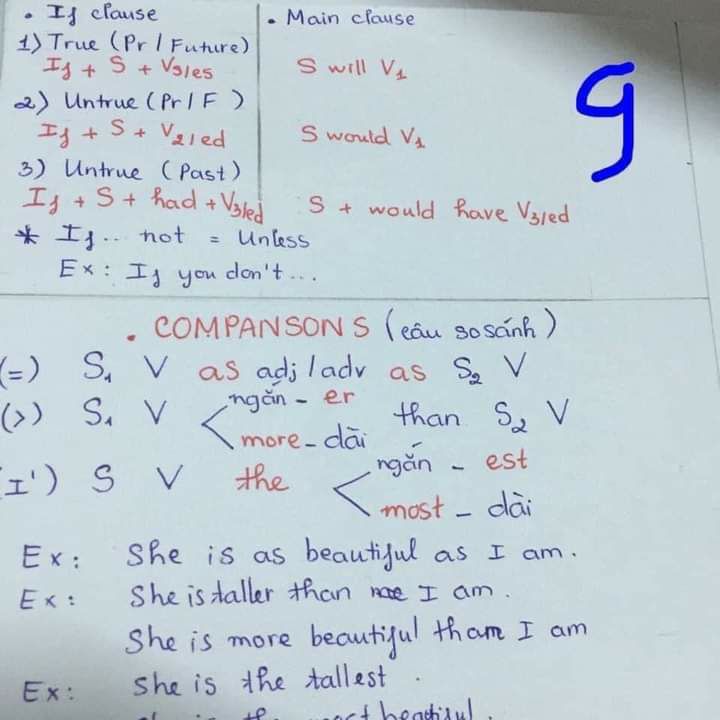 • If clause • Main clause
1) True (Pr / Future)
If + S + V3/es S will V1
2) Untrue (Pr / F )
If + S + V2/ed S would V1
3) Untrue ( Past )
If + S + had + V3/ed S + would have V3/ed
* If... not = Unless
Ex : If you don't ...
9
• COMPANSONS (câu so sánh )
(=) S1 V as adj / adv as S2 V
(>) S1 V ngắn - er than S2 V
more - dài
(I') S V the ngắn - est
most - dài
Ex : She is as beautiful as I am.
Ex : She is taller than I am .
She is more beautiful than I am
Ex : She is the tallest .
is the most beautiful .